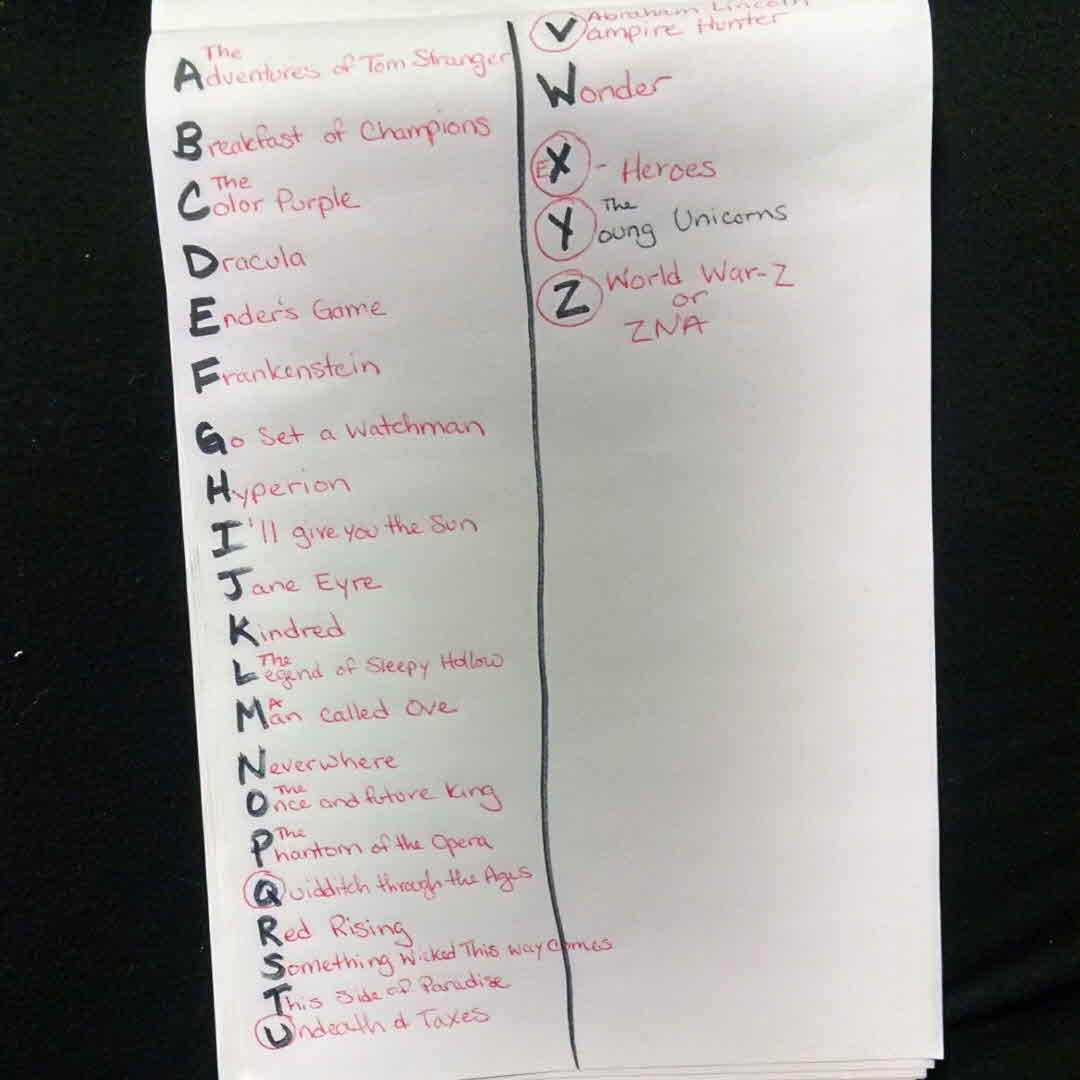 The
Adventures of Tom Stranger
Breakfast of Champions
The
Color Purple
Dracula
Ender's Game
Frankenstein
Go Set a Watchman
Hyperion
I'll give you the Sun
Jane Eyre
Kindred
The
Legend of Sleepy Hollow
A
Man called Ove
Neverwhere
The
Once and future King
The
Phantom of the Opera
Quidditch through the Ages
Red Rising
Something Wicked This way Comes
This Side of Paradise
Undeath & Taxes
Abraham Lincoln
Vampire Hunter
Wonder
EX - Heroes
The
Young Unicorns
Z World War-Z
or
ZNA